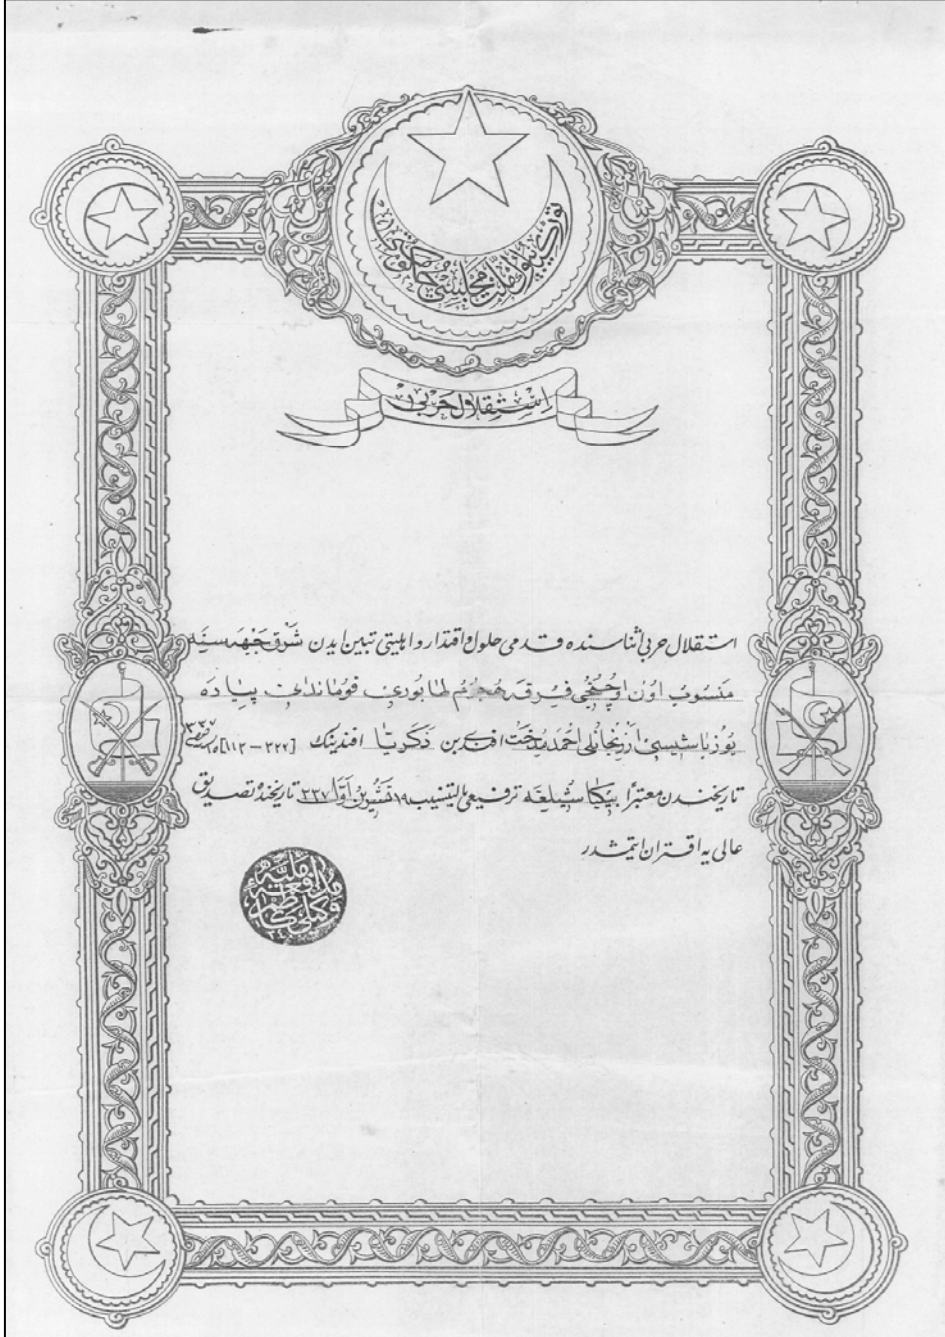 توركيا بيوك ملت مجلسى حكومتى
استقلال حربى
استقلال حربى اثناسنده قدمى حلول و اقتدار و اهليتى تبين ايدن شرق جبهه سنه
منسوب اون اوچنجى فرقه هجوم طابورى قوماندانى پياده
يوزباشيسى ارزنجانلى احمد مدحت افندى بن ذكريا افندينك [٣٢٧ – ١١٢]
تاريخندن معتبراً بيكباشيلغه ترفيعى بالتنسيب ١٩ تشرين اول ٣٣٧ تاريخنده تصديق
عالى يه اقتران ايتمشدر
مدافعۀ مليه وكيلى كاظم